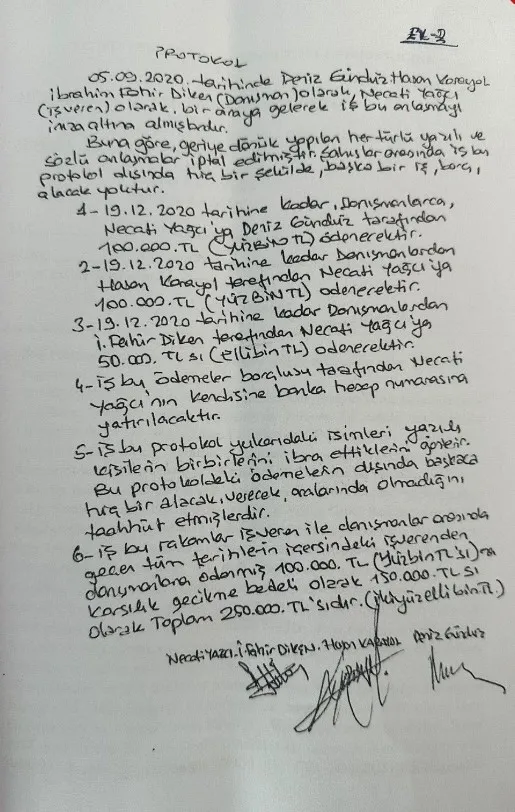 EK-2
PROTOKOL
05.09.2020 tarihinde Deniz Gündüz Hasan Karayol
İbrahim Fahir Diken (Danışman) olarak, Necati Yağcı
(işveren) olarak, bir araya gelerek iş bu anlaşmayı
imza altına almışlardır.
Buna göre, geriye dönük yapılan her türlü yazılı ve
sözlü anlaşmalar iptal edilmiştir. Şahıslar arasında iş bu
protokol dışında hiç bir şekilde, başka bir iş, borç,
alacak yoktur.
1-19.12.2020 tarihine kadar, Danışmanlarca,
Necati Yağcı'ya Deniz Gündüz tarafından
100.000.TL (YÜZBİN TL) ödenecektir.
2-19.12.2020 tarihine kadar Danışmanlardan
Hasan Karayol tarafından Necati Yağcı'ya
100.000.TL (YÜZBİN TL) ödenecektir.
3-19.12.2020 tarihine kadar Danışmanlardan
İ. Fahir Diken tarafından Necati Yağcı'ya
50.000. TL sı (ellibin TL) ödenecektir.
4-iş bu ödemeler borçlusu tarafından Necati
Yağcı'nın kendisine banka hesap numarasına
yatırılacaktır.
5-iş bu protokol yukarıdaki isimleri yazılı
kişilerin birbirlerini ibra ettiklerini gösterir.
Bu protokoldeki ödemelerin dışında başkaca
hiç bir alacak, verecek, aralarında olmadığını
taahhüt etmişlerdir.
6-iş bu rakamlar işveren ile danışmanlar arasında
geçen tüm tarihlerin içersindeki işverenden
danışmanlara ödenmiş 100.000. TL (Yüzbin TL'si) na
karşılık gecikme bedeli olarak 150.000.TL sı
olarak Toplam 250.000.TL'sıdır. (ikiyüzellibin TL.)
Necati YAĞCI-İ Fahir DİKEN. Hasan KARAYOL Deniz Gündüz